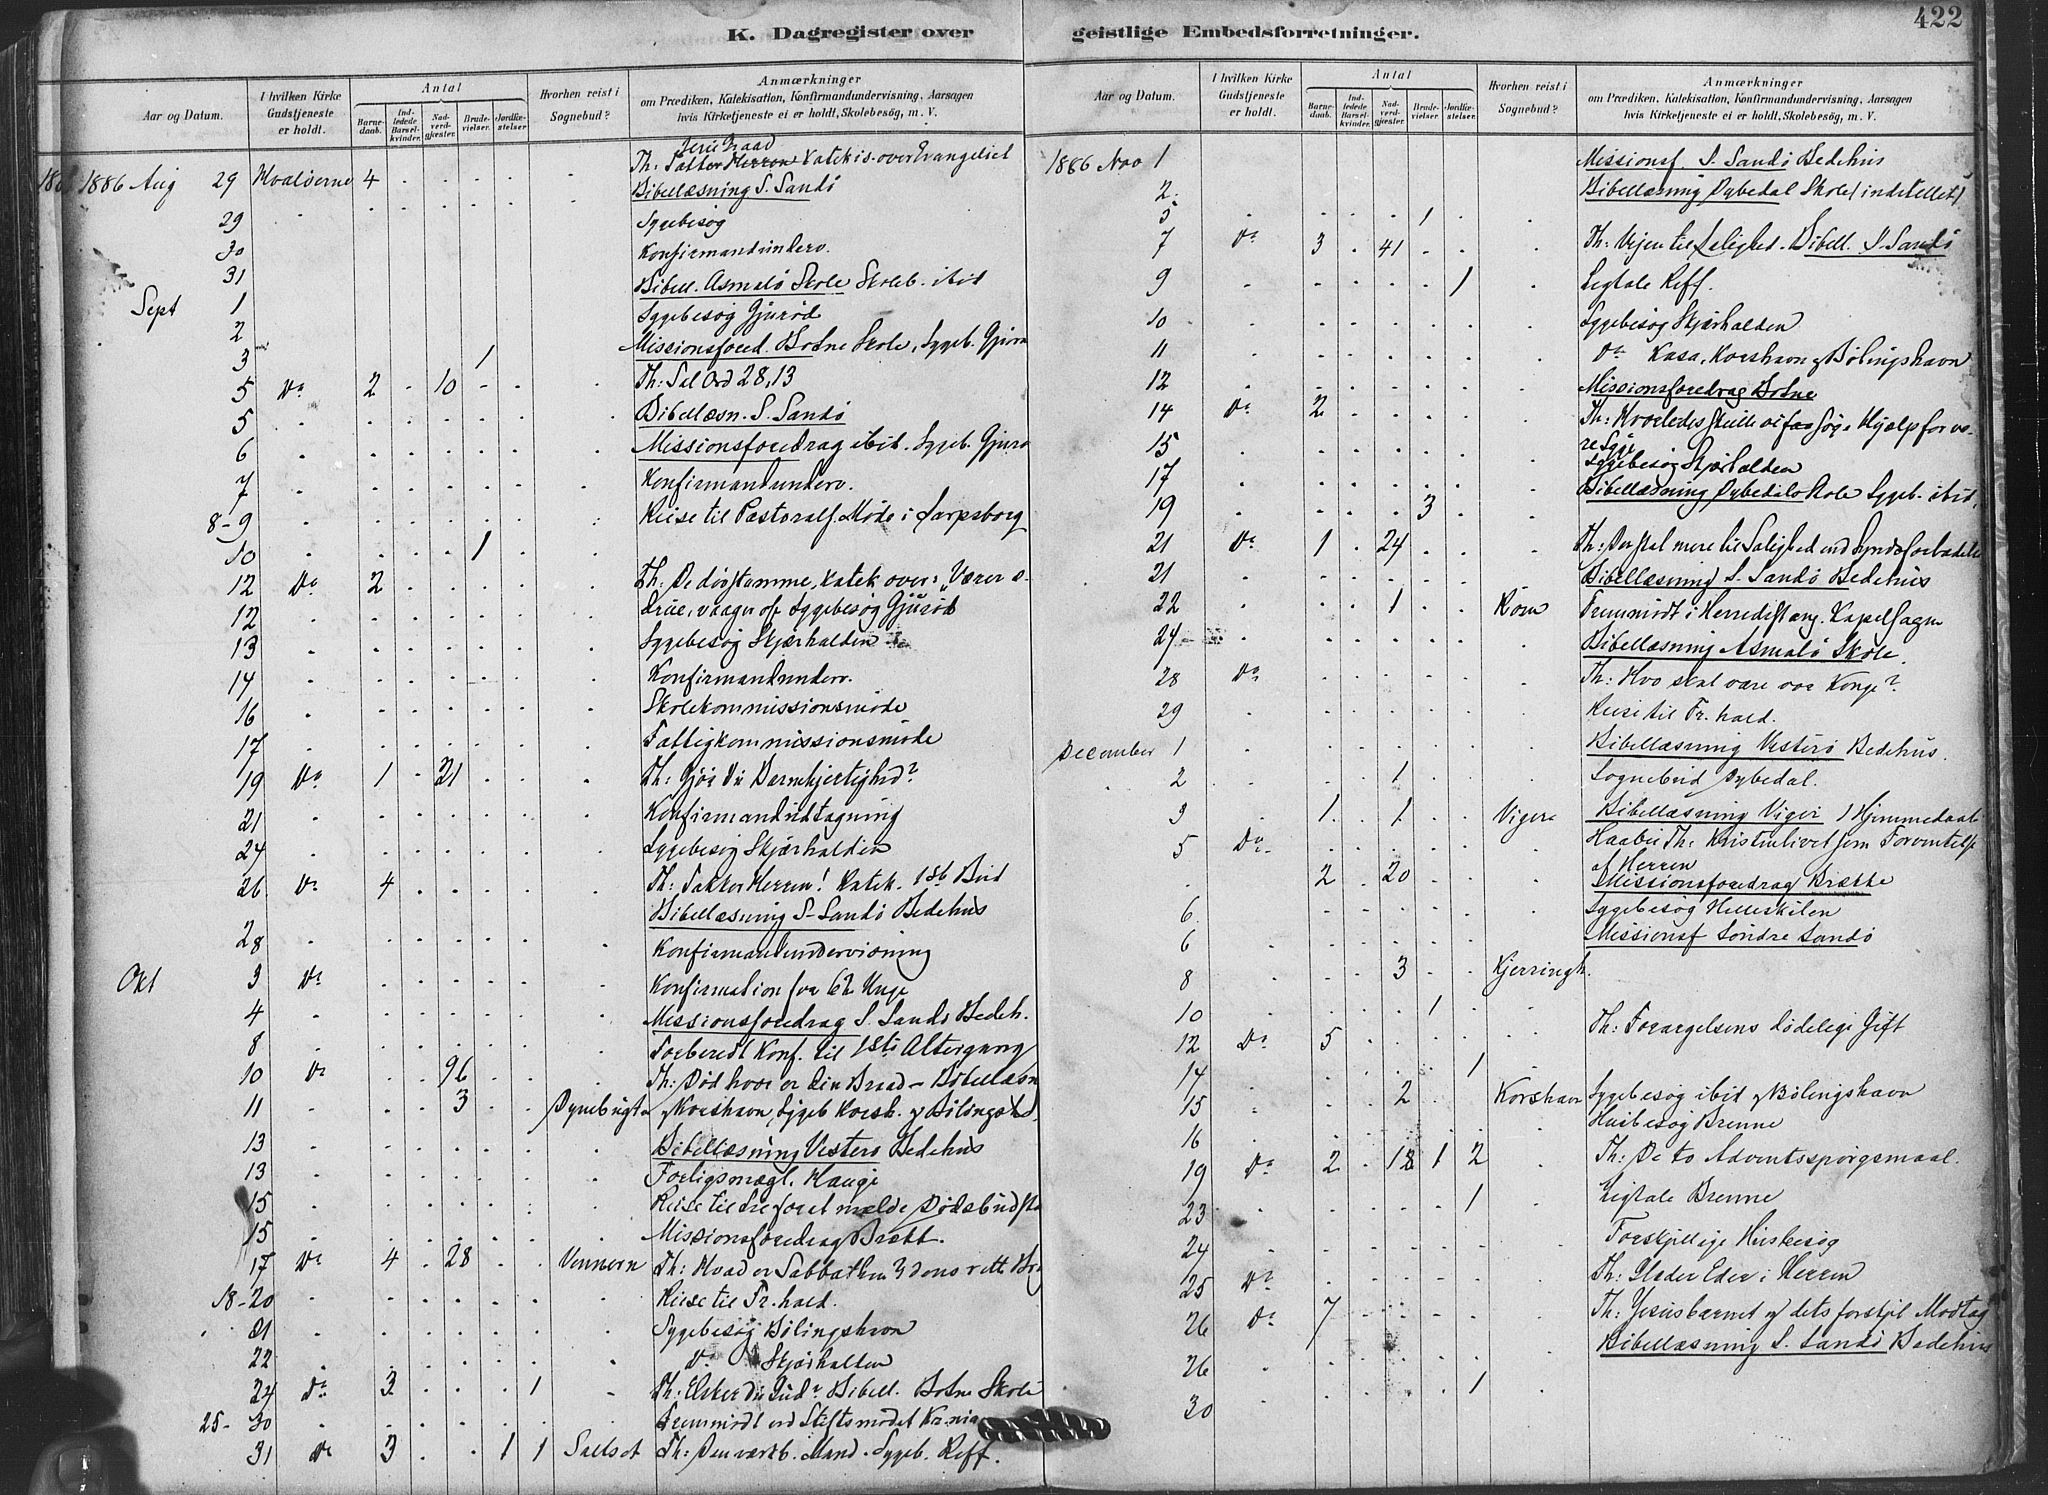 422
K. Dagregister over geistlige Embedsforretninger.
Aar og Datum. I hvilken Kirke Gudstjeneste er holdt. Antal Barnedaab. Indledede Barselkvinder. Nadverdgjæster. Brudevielser. Jordkæstelser Hvorhen reist i Sognebud? Anmærkninger om Prædiken, Katekisation, Konfirmandundervisning, Aarsagen hvis Kirketjeneste ei er holdt, Skolebesøg, m. V.
1886 Aug 29 Hvaløerne 4 Th: Takker Herren Katekis. over Evangeliet
Bibellæsning S. Sandö
29 Sygebesög
30 Konfirmandunderv.
31 Bibell. Asmalö Skole Skoleb. ibid
Sept 1 Sygebesög Gjuröd
2 Missionsfored. Botne Skole, Sygeb.
3 1
5 Do 2 10 Th: Sal Ord 28,13
5 Bibellæsn. S. Sandö
6 Missionsforedrag ibid. Sygeb.
7 Konfirmandunderv.
8-9 Reise til Pastoralf. Möde i Sarpsborg
10 1
12 Do 2 Th: De døvstumme, Katek over: Værer
12 Sygebesög Gjuröd
13 Sygebesög Skjærhalden
14 Konfirmandunderv.
16 Skolekommissionsmöde
17 Fattigkommissionsmöde
19 Do 1 21 Th: Gjör Du Barmhjertighed?
21 Konfirmandudtagning
24 Sygebesög Skjærhalden
26 Do 4 Th: Takker Herren! Katek. 1ste Bud
Bibellæsning S. Sandö Bedehus
28 Konfirmandundervisning
Okt 3 Do Konfirmation for 62 Unge
4 Missionsforedrag S. Sandö Bedeh.
8 Forberedt Konf. til 1ste Altergang
10 Do 96 Th: Död hvor er din Braad - Bibellæsn
11 3 Korshavn, Sygeb Korsh. og Bölingsh.
13 Bibellæsning Vesterö Bedehus
13 Forligsmægl. Hauge
15 Reise til
15 Missionsforedrag Brætt.
17 Do 4 28 Vennern Th: Hvad er Sabbathen Idens rette
18-20 Reise til Fr. hald.
21 Sygebesög Bölingshavn
22 Do Skjærhalden
24 Do 3 1 Th: Elsker Du Gud? Bibell. Botne Skole
25-30 Fremmödt ved Stiftsmödet Kr.nia
31 Do 3 1 1 Th: Den værkb. Mand. Sygeb. Reff.
Aar og Datum. I hvilken Kirke Gudstjeneste er holdt. Antal Barnedaab. Indledede Barselkvinder. Nadverdgjæster. Brudevielser. Jordkæstelser. Hvorhen reist i Sognebud? Anmærkninger om Prædiken, Katekisation, Konfirmandundervisning, Aarsagen hvis Kirketjeneste ei er holdt, Skolebesøg, m. V.
1886 Nov 1 Missionsf. S. Sandö Bedehus
2 Bibellæsning Dybedal Skole (indstillet)
5 1
7 Do 3 41 Th: Veien til Salighed. Bibell. S. Sandö
9 1 Ligtale Reff.
10 Sygebesög Skjærhalden
11 Do Kasa, Korshavn og Bölingshavn
12 Missionsforedrag Botne
14 Do 2 Th: Hvorledes skulle vi søge Hjælp for vore Syge
15 Sygebesög Skjærhalden
17 Bibellæsning Dybedal Skole Sygeb. ibid.
19 3
21 Do 1 24 Th: Der skal mere til Salighed end Syndsforladelse
21 Bibellæsning S. Sandö Bedehus
22 1 Röen Fremmödt i Herredsst. ang. Kapelsagen
24 Bibellæsning Asmalö Skole.
28 Do Th: Hvo skal være vor Konge?
29 Reise til Fr. hald.
December 1 Bibellæsning Vesterö Bedehus.
2 1 Sognebud Dybedal.
3 1 1 Viger Bibellæsning Viger
5 Do 2 20 Haabet Th: Kristenlivet som Forventelse af Herren
Missionsforedrag Brætte
6 Sygebesög Helleskilen
6 Missionsf Söndre Sandö
8 3 Kjerringh.
10 1
12 Do 5 Th: Forargelsens dödelige Gift
14 1
15 2 Korshavn Sygebesög ibid og Bölingshavn
16 Husbesög Brenne
19 Do 2 18 1 2 Th: De to Adventsspörgsmaal.
23 1 Ligtale Brenne
24 Forskjellige Husbesög
25 Do Th: Glæder Eder i Herren
26 Do 7 Th: Jesusbarnet og dets forskjel Modtag
26 Bibellæsning S. Sandö Bedehus
30 1